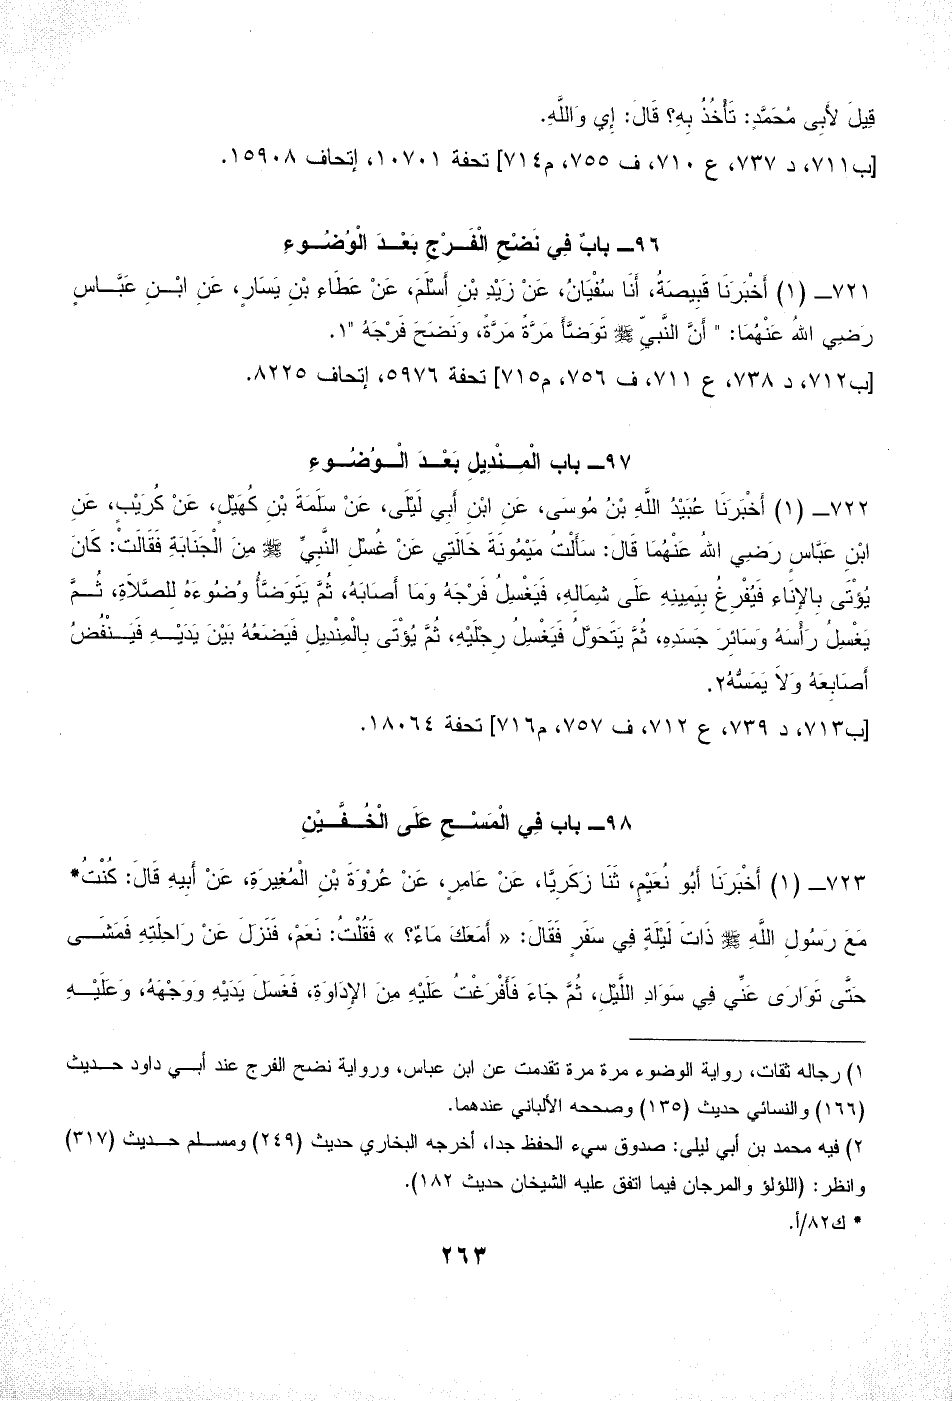 قِيلَ لأَبِى مُحَمَّدٍ: تَأْخُذُ بِهِ؟ قَالَ: إِي وَاللَّهِ.
[ب٧١١، د ٧٣٧، ع ٧١٠، ف ٧٥٥، م٧١٤] تحفة ١٠٧٠١، إتحاف ١٥٩٠٨.
٩٦ــ بابٌ فِي نَضْحِ الْفَرْجِ بَعْدَ الْوُضُوءِ
٧٢١ــ (١) أَخْبَرَنَا قَبِيصَةُ، أَنَا سُفْيَانُ، عَنْ زَيْدِ بْنِ أَسْلَمَ، عَنْ عَطَاءِ بْنِ يَسَارٍ، عَنِ ابْنِ عَبَّاسٍ
رَضِي اللهُ عَنْهُمَا: " أَنَّ النَّبِيَّ ﷺ تَوَضَّأَ مَرَّةً مَرَّةً، وَنَضَحَ فَرْجَهُ "١.
[ب٧١٢، د ٧٣٨، ع ٧١١، ف ٧٥٦، م٧١٥] تحفة ٥٩٧٦، إتحاف ٨٢٢٥.
٩٧ــ باب الْمِنْدِيلِ بَعْدَ الْوُضُوءِ
٧٢٢ــ (١) أَخْبَرَنَا عُبَيْدُ اللَّهِ بْنُ مُوسَى، عَنِ ابْنِ أَبِي لَيْلَى، عَنْ سَلَمَةَ بْنِ كُهَيْلٍ، عَنْ كُرَيْبٍ، عَنِ
ابْنِ عَبَّاسٍ رَضِي اللهُ عَنْهُمَا قَالَ: سَأَلْتُ مَيْمُونَةَ خَالَتِي عَنْ غُسْلِ النَّبِيِّ ﷺ مِنَ الْجَنَابَةِ فَقَالَتْ: كَانَ
يُؤْتَى بِالإِنَاءِ فَيُفْرِغُ بِيَمِينِهِ عَلَى شِمَالِهِ، فَيَغْسِلُ فَرْجَهُ وَمَا أَصَابَهُ، ثُمَّ يَتَوَضَّأُ وُضُوءَهُ لِلصَّلاَةِ، ثُمَّ
يَغْسِلُ رَأْسَهُ وَسَائِرَ جَسَدِهِ، ثُمَّ يَتَحَوَّلُ فَيَغْسِلُ رِجْلَيْهِ، ثُمَّ يُؤْتَى بِالْمِنْدِيلِ فَيَضَعُهُ بَيْنَ يَدَيْهِ فَيَنْفُضُ
أَصَابِعَهُ وَلاَ يَمَسُّهُ٢.
[ب٧١٣، د ٧٣٩، ع ٧١٢، ف ٧٥٧، م٧١٦] تحفة ١٨٠٦٤.
٩٨ــ باب فِي الْمَسْحِ عَلَى الْخُفَّيْنِ
٧٢٣ــ (١) أَخْبَرَنَا أَبُو نُعَيْمٍ، ثَنَا زَكَرِيَّا، عَنْ عَامِرٍ، عَنْ عُرْوَةَ بْنِ الْمُغِيرَةِ، عَنْ أَبِيهِ قَالَ: كُنْتُ*
مَعَ رَسُولِ اللَّهِ ﷺ ذَاتَ لَيْلَةٍ فِي سَفَرٍ فَقَالَ: « أَمَعَكَ مَاءٌ؟ » فَقُلْتُ: نَعَمْ، فَنَزَلَ عَنْ رَاحِلَتِهِ فَمَشَى
حَتَّى تَوَارَى عَنِّي فِي سَوَادِ اللَّيْلِ، ثُمَّ جَاءَ فَأَفْرَغْتُ عَلَيْهِ مِنَ الإِدَاوَةِ، فَغَسَلَ يَدَيْهِ وَوَجْهَهُ، وَعَلَيْهِ
١) رجاله ثقات، رواية الوضوء مرة مرة تقدمت عن ابن عباس، ورواية نضح الفرج عند أبي داود حديث
(١٦٦) والنسائي حديث (١٣٥) وصححه الألباني عندهما.
٢) فيه محمد بن أبي ليلى: صدوق سيء الحفظ جدا، أخرجه البخاري حديث (٢٤٩) ومسلم حديث (٣١٧)
وانظر: (اللؤلؤ والمرجان فيما اتفق عليه الشيخان حديث ١٨٢).
* ك٨٢/أ.
٢٦٣